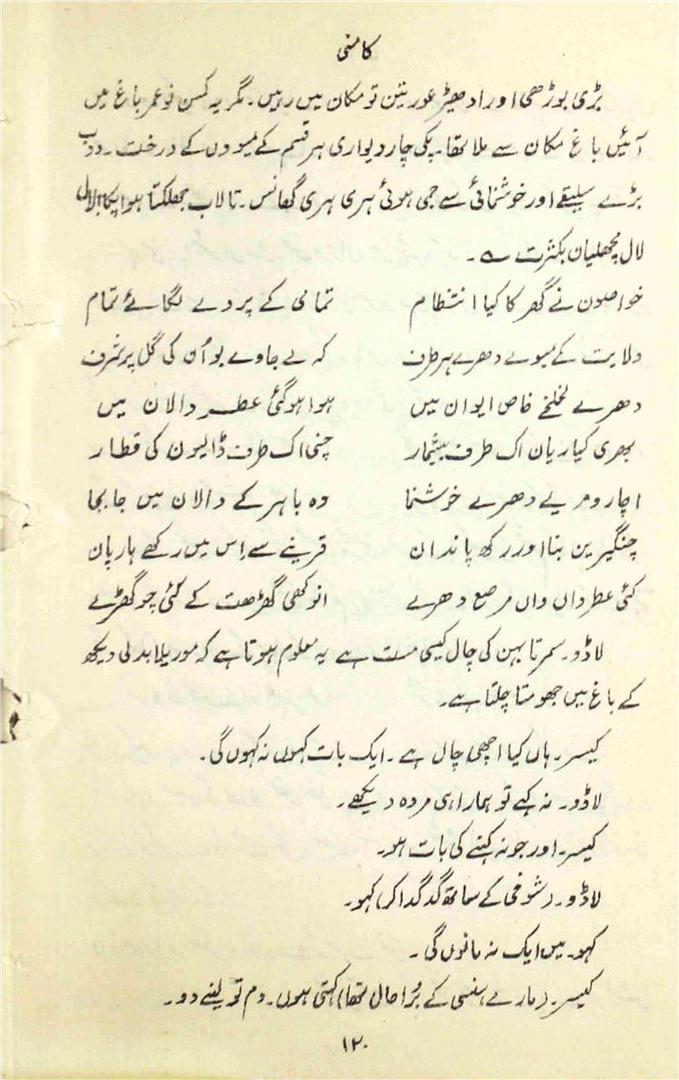 کامنی
بڑی بوڑھی اور ادھیڑ عورتین تو مکان میں رہیں۔ مگر یہ کمسن نوعمر باغ میں
آئیں باغ مکان سے ملا تھا۔ پکی چار دیواری ہر قسم کے میووں کے درخت۔ دوب
بڑے سلیقے اور خوشنمائی سے جمی ہوئی ہری ہری گھانس۔ تالاب جھلکتا ہوا
لال مچھلیان بکثرت ے۔
خواصون نے گھر کا کیا انتظام تمامی کے پردے لگائے تمام
ولایت کے میوے دھرے ہر طرف کہ لے جاوے بو اُن کی گل پر شرف
دھرے لخلخے خاص ایوان میں ہوا ہوگئی عطر دالان میں
بھری کیاریان اک طرف بیشمار چنی اک طرف ڈالیون کی قطار
اچار و مربے دھرے خوشنما وہ باہر کے دالان میں جابجا
چنگیرین بنا اور رکھ پاندان قرینے سے اس میں رکھے ہار پان
کئی عطرداں واں مرصع دھرے انوکھی گھڑھت کے کئی چوگھڑے
لاڈو۔ سمرتا بہن کی چال کیسی مست ہے یہ معلوم ہوتا ہے کہ مور یلا بدلی دیکھ
کے باغ میں جھومتا چلتا ہے۔
کیسر۔ ہاں کیا اچھی چال ہے۔ ایک بات کہوں نہ کہوں گی۔
لاڈو۔ نہ کہے تو ہمارا ہی مردہ دیکھے۔
کیسر۔ اور جو نہ کہنے کی بات ہو۔
لاڈو۔ (شوخی کے ساتھ گدگدا کر) کہو۔
کہو۔ میں ایک نہ مانوں گی۔
کیسر۔ (مارے ہنسی کے بُرا حال تھا) کہتی ہوں۔ دم تو لینے دو۔
۱۲۰